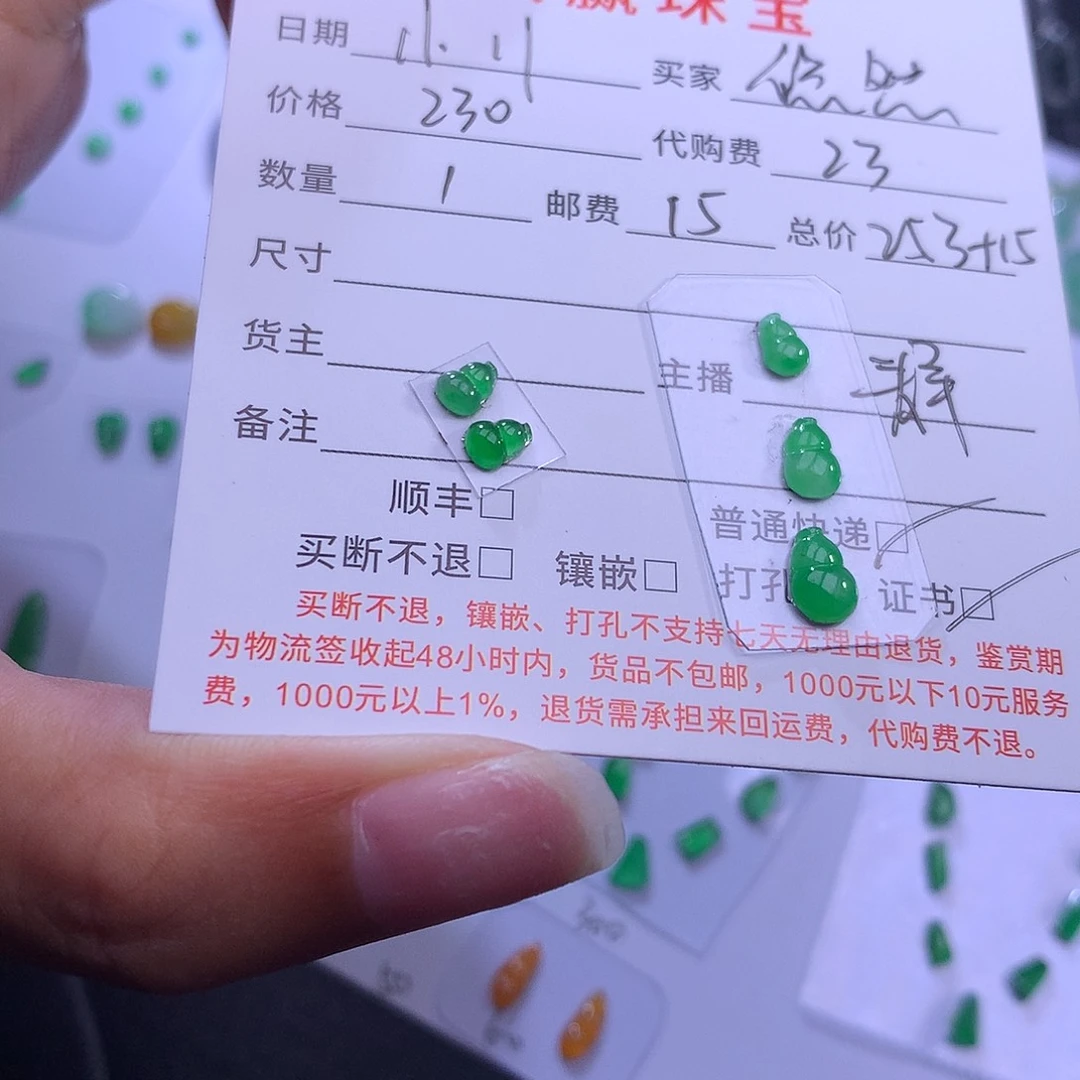 赢珠宝
日期 11.11 买家 悠然
价格 230 代购费 23
数量 1 邮费 15 总价 253+15
尺寸
货主 主播
备注
顺丰□ 普通快递□
买断不退□ 镶嵌□ 打孔 证书□
买断不退，镶嵌、打孔不支持七天无理由退货，鉴赏期
为物流签收起48小时内，货品不包邮，1000元以下10元服务
费，1000元以上1%，退货需承担来回运费，代购费不退。